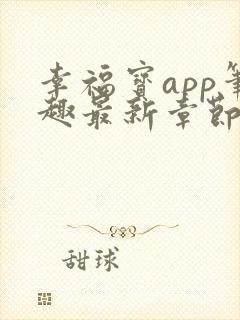 幸福寶app筆
趣最新章節
甜球